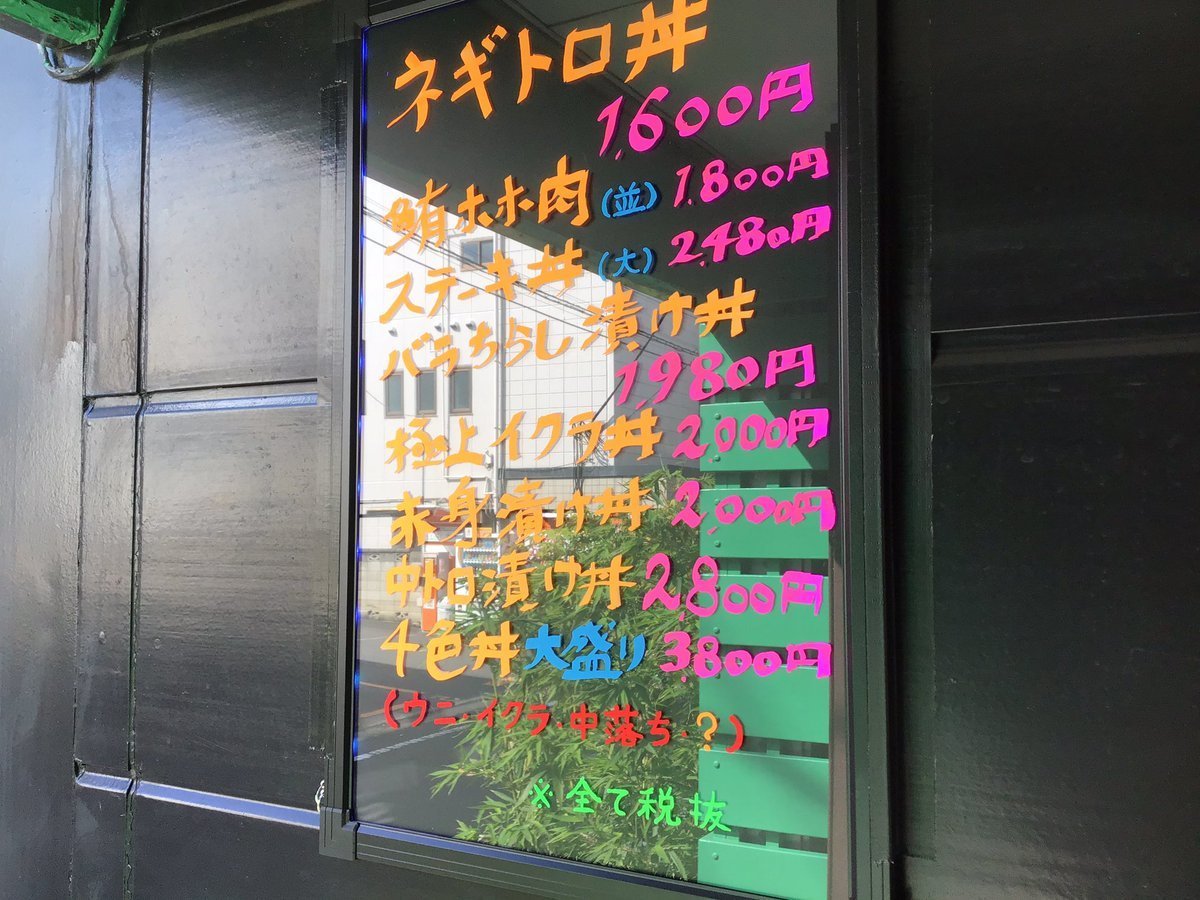 ネギトロ丼
1,600円
鮪ホホ肉(並)1,800円
ステーキ丼(大)2,480円
バラちらし漬け丼
1,980円
極上イクラ丼 2,000円
赤身漬け丼 2,000円
中トロ漬け丼 2,800円
4色丼大盛り 3,800円
(ウニ・イクラ・中落ち・?)
※全て税抜